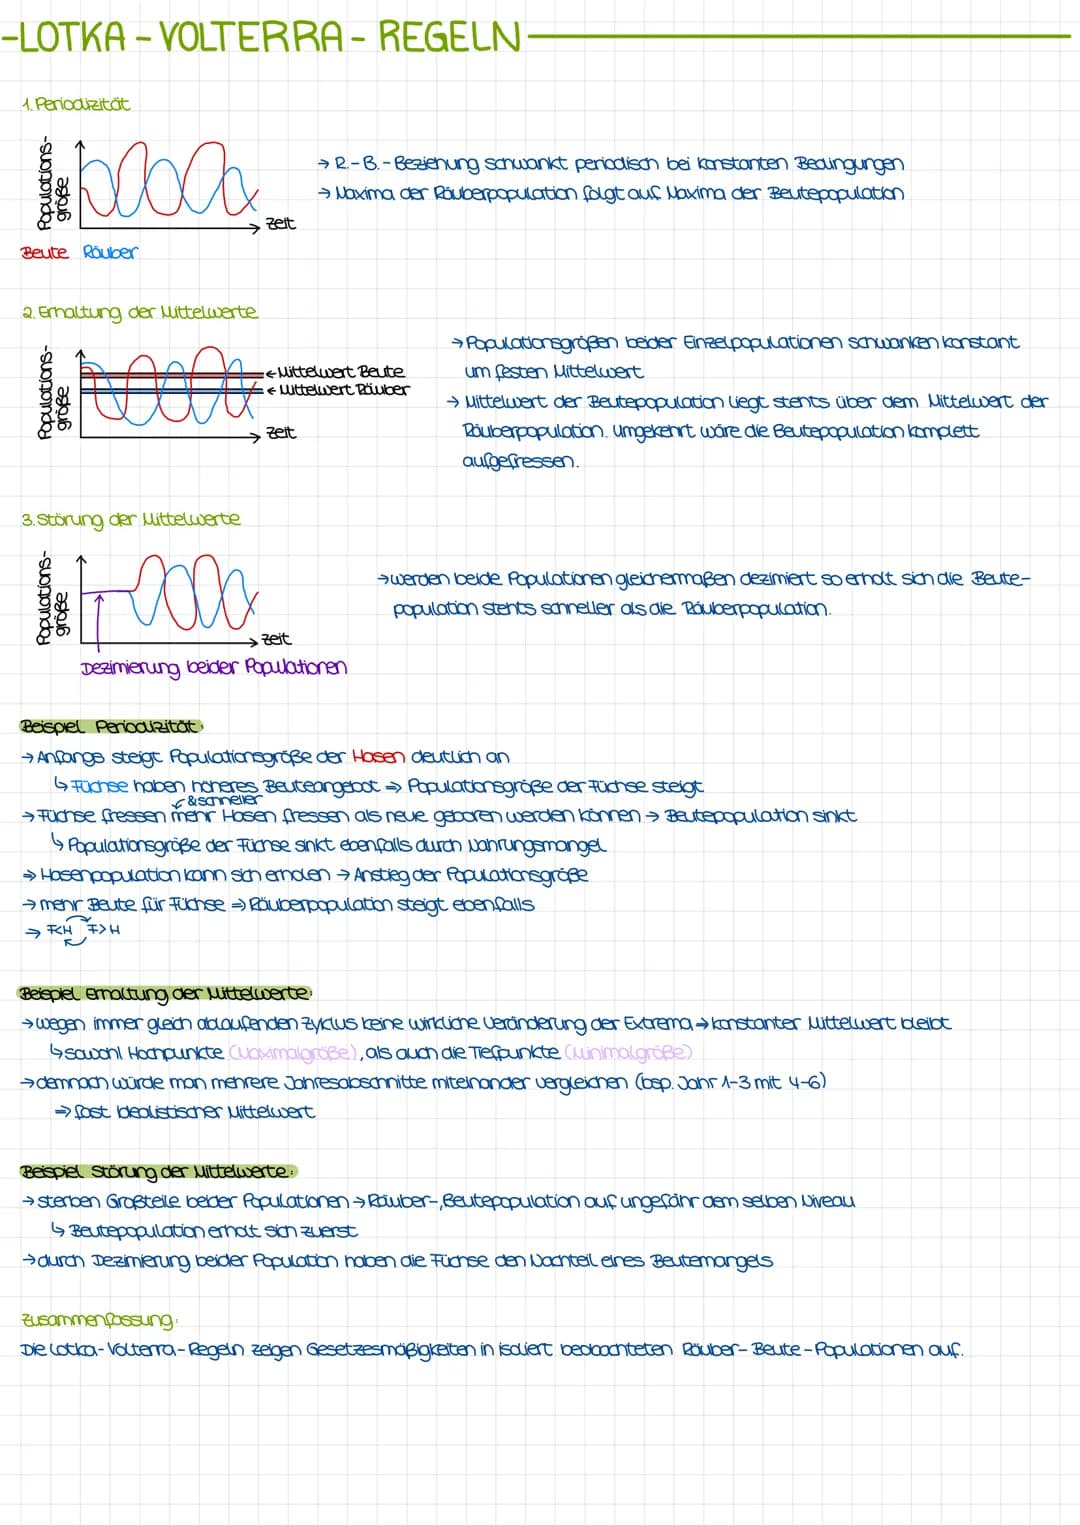 -LOTKA-VOLTERRA-REGELN
1. Periodizität
Populations-
größe
Zeit
Beute Räuber
→ R.-B.-Beziehung schwankt periodisch bei konstanten Bedingungen
→ Maxima der Räuberpopulation folgt auf Maxima der Beutepopulation
2. Erhaltung der Mittelwerte
Populations-
größe
← Mittelwert Beute
← Mittelwert Räuber
Zeit
→ Populationsgrößen beider Einzelpopulationen schwanken konstant
um festen Mittelwert
→ Mittelwert der Beutepopulation liegt stents über dem Mittelwert der
Räuberpopulation. Umgekehrt wäre die Beutepopulation komplett
aufgefressen.
3. Störung der Mittelwerte
Populations-
größe
Zeit
Dezimierung beider Populationen
→ werden beide Populationen gleichermaßen dezimiert so erholt sich die Beute-
population stents schneller als die Räuberpopulation.
Beispiel Periodizität:
→ Anfangs steigt Populationsgröße der Hasen deutlich an
↳ Füchse haben höheres Beuteangebot ⇒ Populationsgröße der Füchse steigt
& schneller
→ Füchse fressen mehr Hasen fressen als neue geboren werden können → Beutepopulation sinkt
↳ Populationsgröße der Füchse sinkt ebenfalls durch Nahrungsmangel
⇒ Hasenpopulation kann sich erholen → Anstieg der Populationsgröße
→ mehr Beute für Füchse ⇒ Räuberpopulation steigt ebenfalls
→ F<H F>H
Beispiel Erhaltung der Mittelwerte:
→ wegen immer gleich ablaufenden Zyklus keine wirkliche Veränderung der Extrema → konstanter Mittelwert bleibt
↳ sowohl Hochpunkte (Maximalgröße), als auch die Tiefpunkte (Minimalgröße)
→ demnach würde man mehrere Jahresabschnitte miteinander vergleichen (bsp. Jahr 1-3 mit 4-6)
⇒ fast idealistischer Mittelwert
Beispiel Störung der Mittelwerte:
→ sterben Großteile beider Populationen → Räuber-, Beutepopulation auf ungefähr dem selben Niveau
↳ Beutepopulation erholt sich zuerst
→ durch Dezimierung beider Population haben die Füchse den Nachteil eines Beutemangels
Zusammenfassung:
Die Lotka-Volterra-Regeln zeigen Gesetzesmäßigkeiten in isoliert beobachteten Räuber-Beute-Populationen auf.